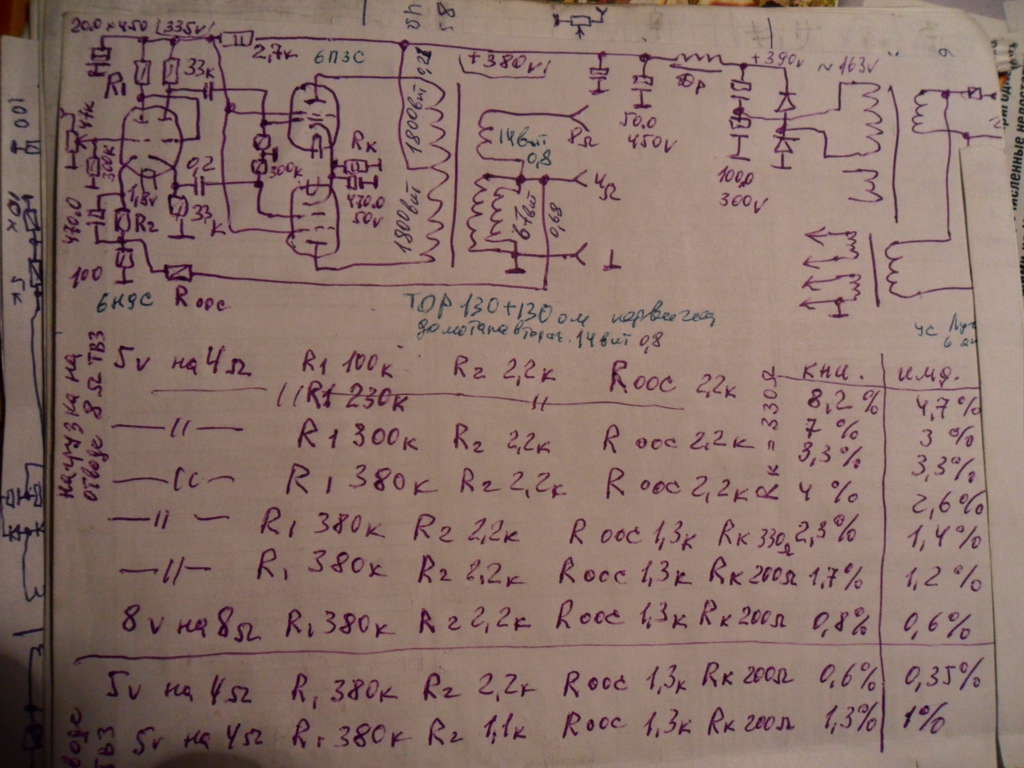 20.0 x 450 (335v)
2,7к
6П3С
+380v
+390v
~163v
R1
33к
44к
300к
1,8v
0,2
470.0
R2
33к
100
300к
Rк
470.0
50v
1800вит
1800вит
14вит
0,8
67вит
0,68
8Ω
4Ω
50.0
450v
100,0
300v
6Н9С
Rоос
ТОР 130+130 ом
домотана 14вит 0,8
нагрузка на
отводе 8Ω ТВЗ
Rк = 330Ω
кни. имд.
5v на 4Ω R1 100к R2 2,2к Rоос 22к 8,2% 4,7%
—//— R1 230к —//— 7% 3%
—//— R1 300к R2 2,2к Rоос 2,2к 3,3% 3,3%
—//— R1 380к R2 2,2к Rоос 2,2к 4% 2,6%
—//— R1 380к R2 2,2к Rоос 1,3к Rк 330Ω 2,3% 1,4%
—//— R1 380к R2 2,2к Rоос 1,3к Rк 200Ω 1,7% 1,2%
8v на 8Ω R1 380к R2 2,2к Rоос 1,3к Rк 200Ω 0,8% 0,6%
5v на 4Ω R1 380к R2 2,2к Rоос 1,3к Rк 200Ω 0,6% 0,35%
5v на 4Ω R1 380к R2 1,1к Rоос 1,3к Rк 200Ω 1,3% 1%
ТВЗ
100
10к
5к